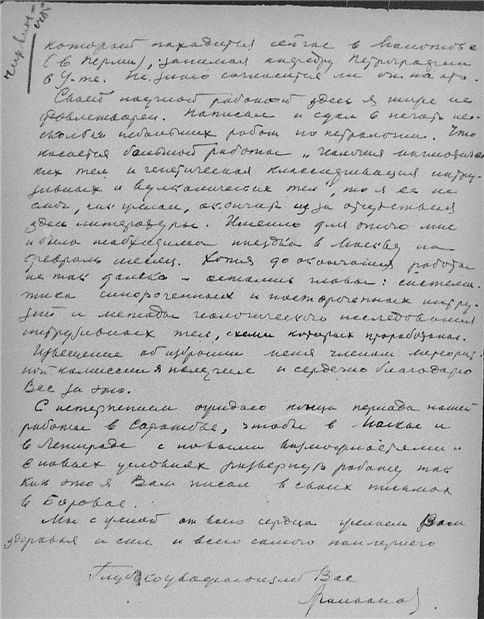 который находится сейчас в Молотове
(в Перми), занимая кафедру Петрографии
в У-те. Не знаю согласится ли он на это.
Своей научной работой здесь я не
удовлетворен. Написал и сдал в печать не-
сколько небольших работ по петрологии. Что
касается большой работы „Механизм магматичес-
ких тел и генетическая классификация интру-
зивных и вулканических тел", то я ее не
смог, из-за отсутствия
здесь литературы. Именно для этого мне
и была необходима поездка в Москву на
февраль месяц. Хотя до окончания работы
не так далеко – остались главы: система-
тика синорогенных и посторогенных интру-
зий и методы геологического исследования
интрузивных тел, схемы которых проработал.
Извещение об избрании меня членом метеорит-
ной комиссии я получил и сердечно благодарю
Вас за это.
С нетерпением ожидаю конца периода нашей
работы в Саратове, чтобы в Москве и
в Ленинграде с новыми возможностями и
в новых условиях развернуть работу так
как это я Вам писал в своих письмах
в Боровое.
Мы с женой от всего сердца желаем Вам
здоровья и сил и всего самого наилучшего
Глубокоуважающий Вас